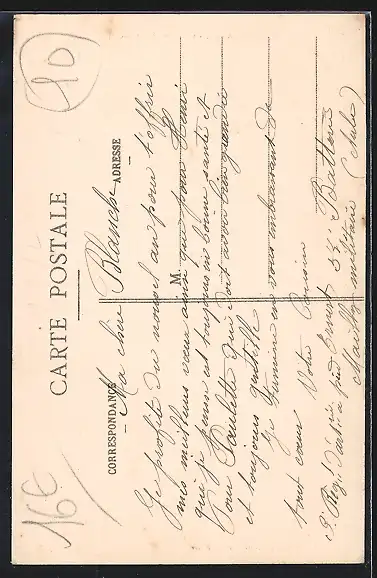 10
16€
CARTE POSTALE
CORRESPONDANCE
ADRESSE
M
Ma chère Blanche
Je profite du nouvel an pour t'offrir
mes meilleurs vœux ainsi que pour Henri
qui je pense est toujours en bonne santé et
Pour Paulette qui doit avoir bien grandie
et toujours gentille
Je termine en vous embrassant de
tout cœur Votre Cousin
Regt d'art à pied 33e Batterie
Mailly militaire (Aube)